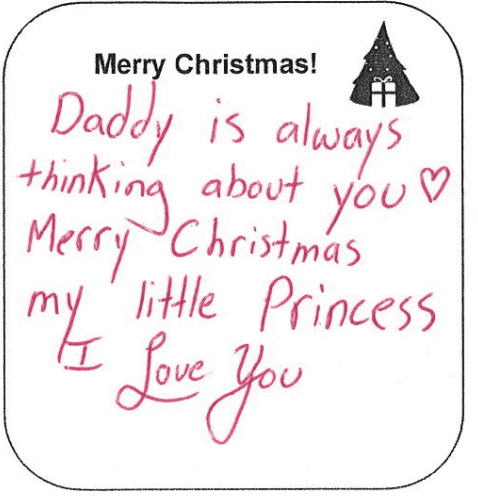 Merry Christmas!
Daddy is always
thinking about you ♡
Merry Christmas
my little Princess
I Love You